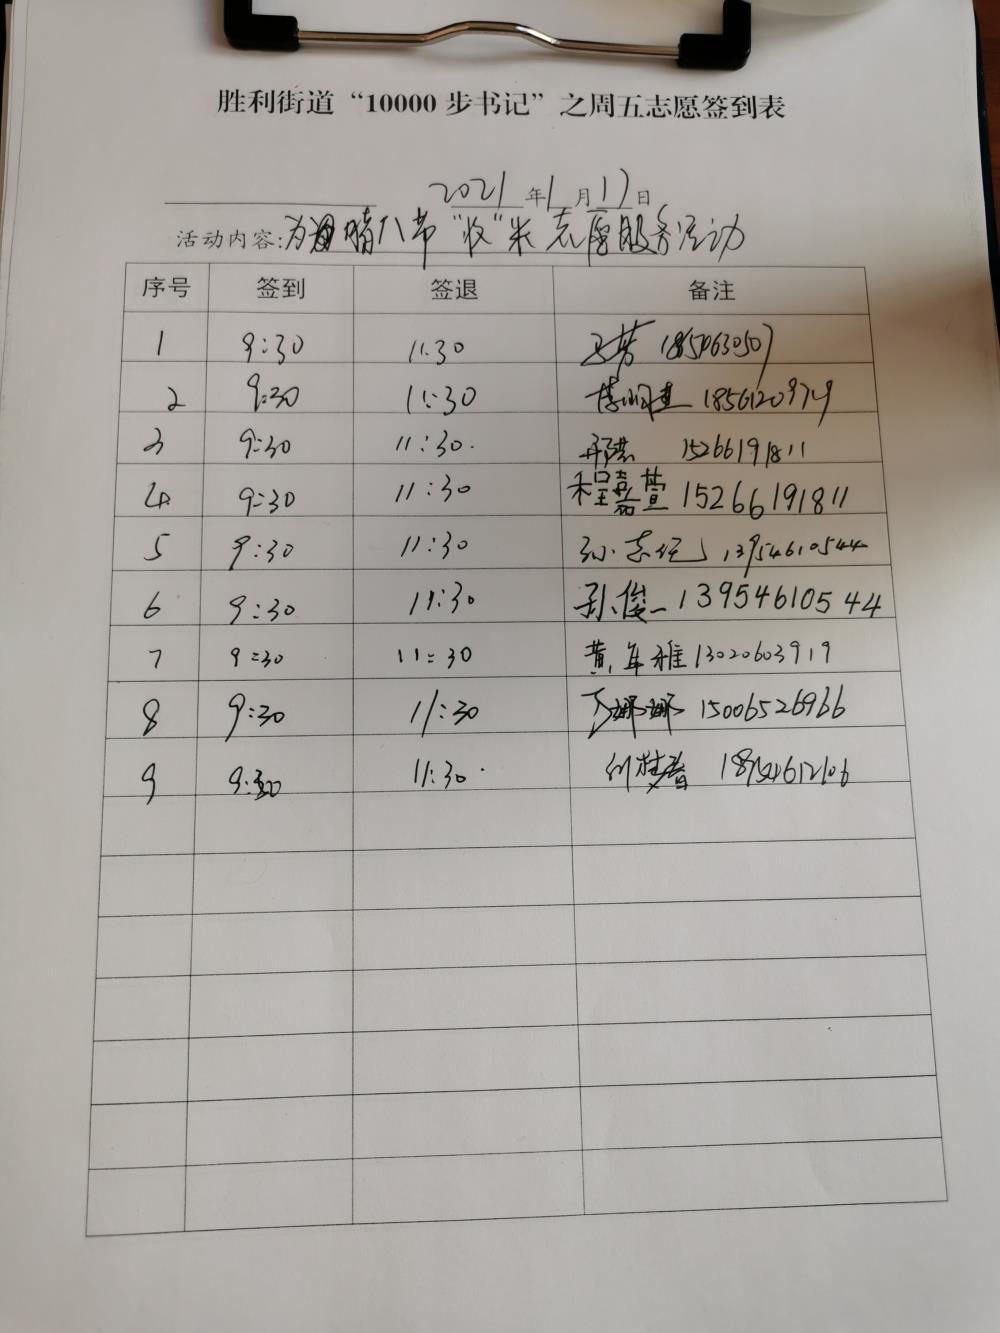 胜利街道“10000 步书记”之周五志愿签到表
2021年1月17日
活动内容:为 腊八节“收”米志愿服务活动
序号 签到 签退 备注
1 9:30 11:30 18650630507
2 9:30 11:30 18561209749
3 9:30 11:30 15266191811
4 9:30 11:30 程嘉萱 15266191811
5 9:30 11:30 孙志 13954610544
6 9:30 11:30 孙俊一 13954610544
7 9:30 11:30 黄年雅 13020603919
8 9:30 11:30 娜娜 15006526966
9 9:30 11:30